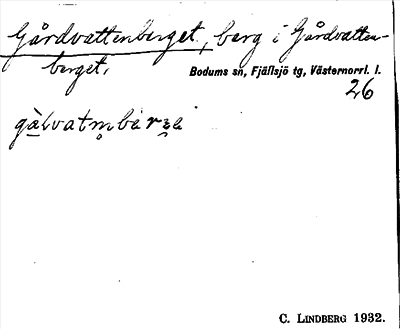 Gårdvattenberget, berg i Gårdvatten-
berget,
Bodums sn, Fjällsjö tg, Västernorrl. l.
26
C. LINDBERG 1932.